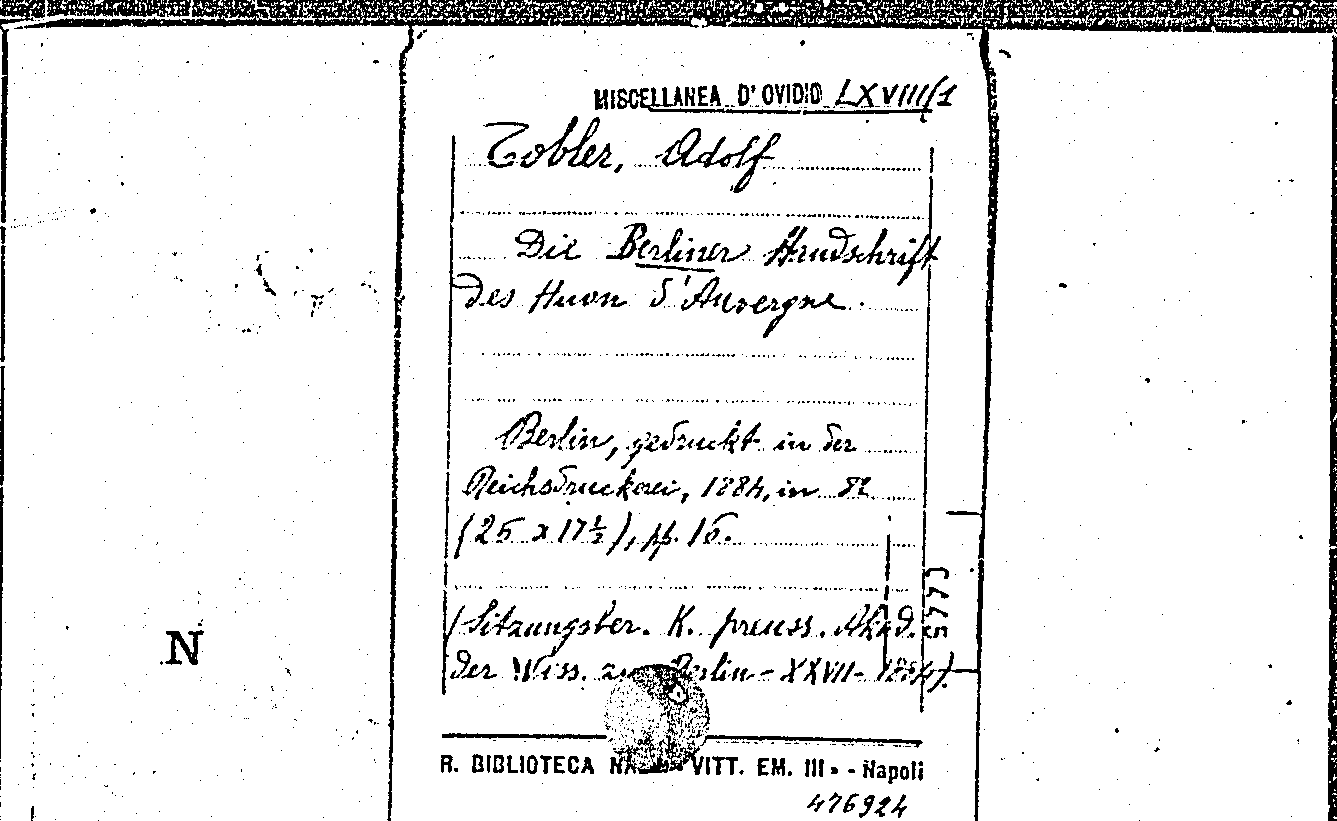 MISCELLANEA D'OVIDIO LXVIII/1
Tobler, Adolf
Die Berliner Handschrift
des Huon d'Auvergne.
Berlin, gedruckt in der
Reichsdruckerei, 1884, in 8º
(25 x 17½), pp. 16.
(Sitzungsber. K. preuss. Akad.
der Wiss. zu Berlin - XXVII - 1884).
5773
N
R. BIBLIOTECA VITT. EM. III - Napoli
476924